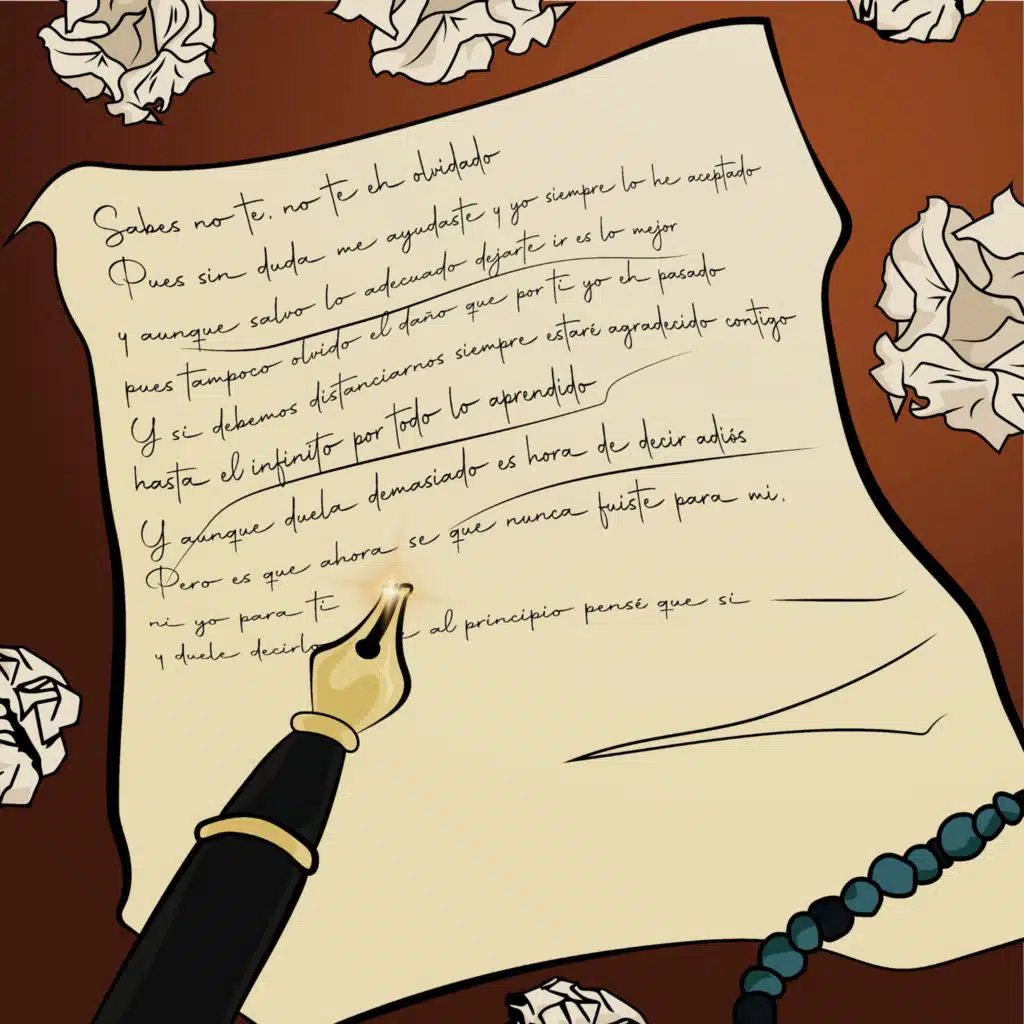 Sabes no te, no te eh olvidado
Pues sin duda me ayudaste y yo siempre lo he aceptado
y aunque salvo lo adecuado dejarte ir es lo mejor
pues tampoco olvido el daño que por ti yo eh pasado
Y si debemos distanciarnos siempre estaré agradecido contigo
hasta el infinito por todo lo aprendido
Y aunque duela demasiado es hora de decir adiós
Pero es que ahora se que nunca fuiste para mi,
ni yo para ti
y duele decirlo al principio pensé que si